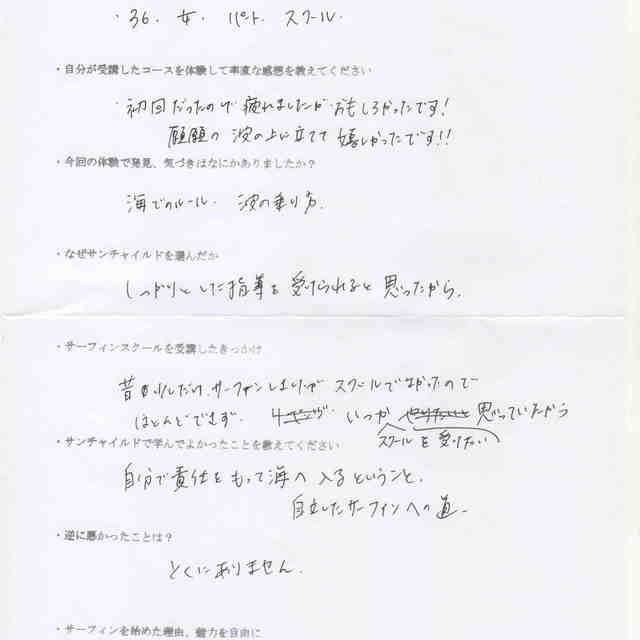 ・36. 女. パート. スクール.
・自分が受講したコースを体験して率直な感想を教えてください
・初回だったので疲れましたが おもしろかったです!
願願の 波の上に立てて 嬉しかったです!!
・今回の体験で発見、気づきはなにかありましたか?
海でのルール. 波の乗り方.
・なぜサンチャイルドを選んだか
しっかりとした指導を 受けられると 思ったから.
・サーフィンスクールを受講したきっかけ
昔 少しだけ サーフィンしましたが スクールでなかったので
ほとんどできず. いつか 思っていたから
スクールを受けたい
・サンチャイルドで学んでよかったことを教えてください
自分で責任をもって海へ入るということ.
自立したサーフィンへの道.
・逆に悪かったことは?
とくにありません.
・サーフィンを始めた理由、魅力を自由に